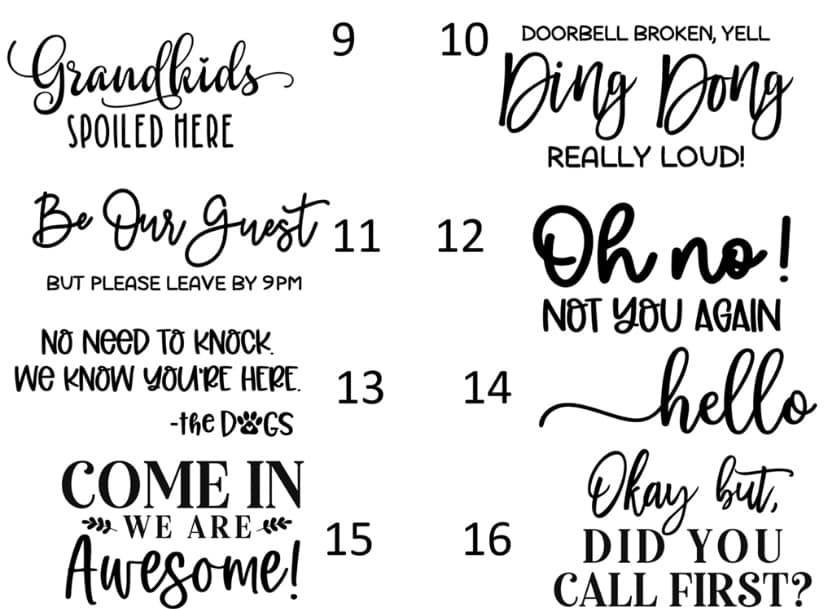 Grandkids
SPOILED HERE
9
10
DOORBELL BROKEN, YELL
Ding Dong
REALLY LOUD!
Be Our Guest
BUT PLEASE LEAVE BY 9PM
11
12
Oh no!
NOT YOU AGAIN
NO NEED TO KNOCK.
WE KNOW YOU'RE HERE.
-the DOGS
13
14
hello
COME IN
WE ARE
Awesome!
15
16
Okay but,
DID YOU
CALL FIRST?